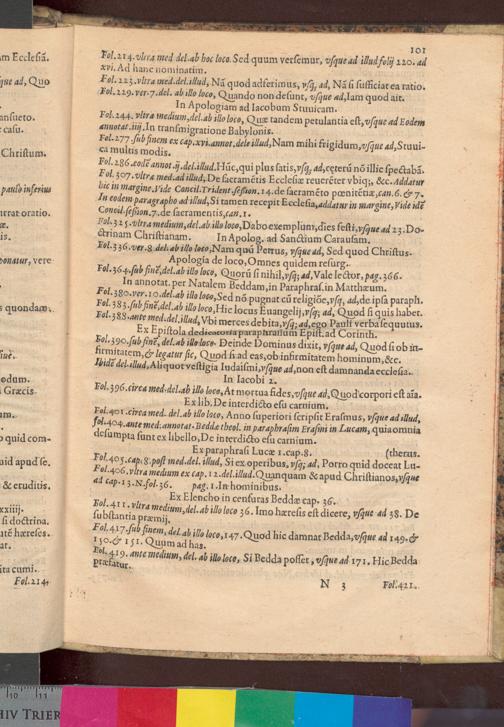 am Ecclesiã.
que ad, Quo
ansueto.
casu.
Christum.
paulo inferius
urrat oratio.
æ.
is.
ponatur, vere
s quondam.
siuè.
odum.
i Græcis.
um.
o quid com-
uid apud se.
& eruditis.
xxiiij.
si doctrina.
atē hæreses.
at.
ita cumi.
Fol.214.
101
Fol.214.vltra med del.ab hoc loco. Sed quum versemur, vsque ad illud folij 220. ad
xvi. Ad hanc nominatim.
Fol.223.vltra med.del.illud, Nã quod adferimus, vsq; ad, Nã si sufficiat ea ratio.
Fol.229.ver.7.del.ab illo loco, Quando non desunt, vsque ad, Iam quod ait.
In Apologiam ad Iacobum Stuuicam.
Fol.244.vltra medium, del.ab illo loco, Quæ tandem petulantia est, vsque ad Eodem
annotat.iiij. In transmigratione Babylonis.
Fol.277.sub finem ex cap.xvi.annot.dele illud, Nam mihi frigidum, vsque ad, Stuui-
ca multis modis.
Fol.286.eodē annot.ij.del.illud. Hûc, qui plus satis, vsq; ad, ceterū nō illic spectabã.
Fol.307.vltra med.ad illud, De sacramētis Ecclesiæ reuerēter vbiq;, &c. Addatur
hic in margine. Vide Concil.Trident.session.14.de sacramēto pœnitētiæ, can.6.&.7.
In eodem paragrapho ad illud, Si tamen recepit Ecclesia, addatur in margine, Vide idē
Concil.session.7.de sacramentis, can.1.
Fol.325.vltra medium, del.ab illo loco, Dabo exemplum, dies festi, vsque ad 23. Do-
ctrinam Christianam. In Apolog. ad Sanctium Carausam.
Fol.336.ver.8 del.ab illo loco, Nam quū Petrus, vsque ad, Sed quod Christus.
Apologia de loco, Omnes quidem resurg.
Fol.364.sub finē, del.ab illo loco, Quorū si nihil, vsq; ad, Vale lector, pag.366.
In annotat. per Natalem Beddam, in Paraphras. in Matthæum.
Fol.380.ver.10.del.ab illo loco, Sed nō pugnat cū religiōe, vsq; ad, de ipsa paraph.
Fol.383.sub finē, del.ab illo loco, Hic locus Euangelij, vsq; ad, Quod si quis habet.
Fol.388.ante med.del.illud, Vbi merces debita, vsq; ad, ego Pauli verba sequutus.
Ex Epistola dedicatoria paraphrasium Epist. ad Corinth.
Fol.390.sub finē, del.ab illo loco. Deinde Dominus dixit, vsque ad, Quod si ob in-
firmitatem, & legatur sic, Quod si ad eas, ob infirmitatem hominum, &c.
Ibidē del.illud, Aliquot vestigia Iudaismi, vsque ad, non est damnanda ecclesia.
In Iacobi 2.
Fol.396.circa med.del.ab illo loco, At mortua fides, vsque ad, Quod corpori est aĩa.
Ex lib. De interdicto esu carnium.
Fol.401.circa med.del.ab illo loco, Anno superiori scripsit Erasmus, vsque ad illud,
fol.404.ante med.annotat. Beddæ theol. in paraphrasim Erasmi in Lucam, quia omnia
desumpta sunt ex libello, De interdicto esu carnium.
Ex paraphrasi Lucæ 1.cap.8. (therus.
Fol.405.cap.8.post med.del.illud, Si ex operibus, vsq; ad, Porro quid doceat Lu-
Fol.406.vltra medium ex cap.12.del.illud. Quanquam & apud Christianos, vsque
ad cap.13.N.fol.36. pag.1. In hominibus.
Ex Elencho in censuras Beddæ cap. 36.
Fol.411.vltra medium, del.ab illo loco 36. Imo hæresis est dicere, vsque ad 38. De
substantia præmij.
Fol.417.sub finem, del.ab illo loco, 147. Quod hic damnat Bedda, vsque ad 149.&
150.& 151. Quum ad has.
Fol.419.ante medium, del.ab illo loco, Si Bedda posset, vsque ad 171. Hic Bedda
præfatur.
N 3 Fol.421.
10 11
HIV TRIER